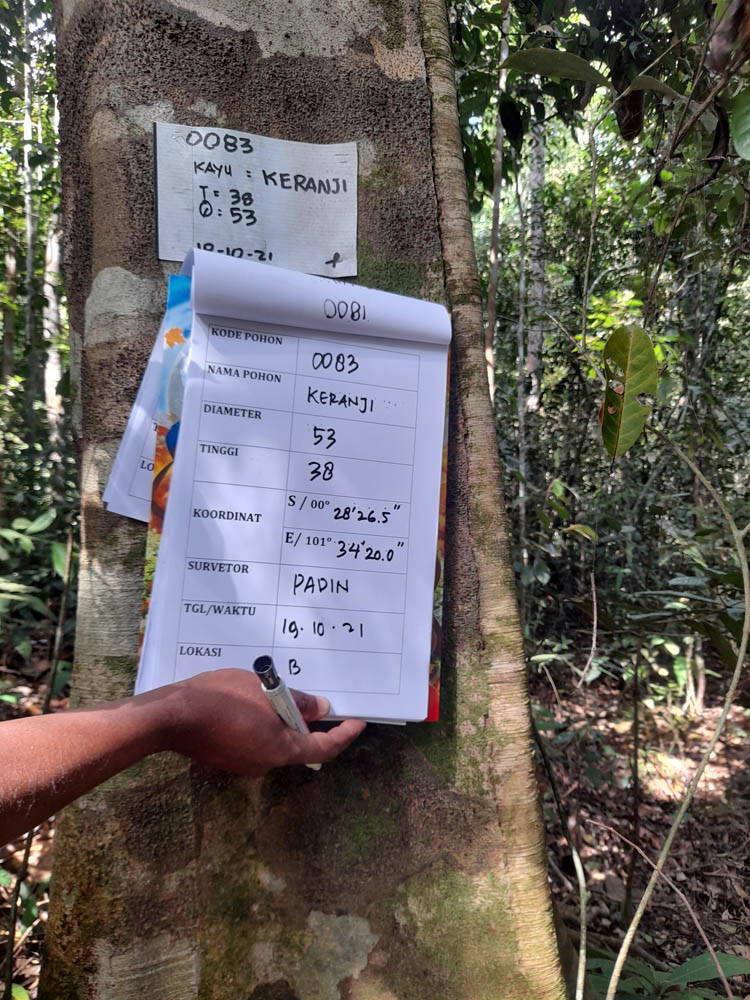 0083
KAYU : KERANJI
T = 38
: 53
19-10-21
0081
KODE POHON 0083
NAMA POHON KERANJI
DIAMETER 53
TINGGI 38
KOORDINAT S / 00° 28'26.5"
E/ 101° 34'20.0"
SURVETOR PADIN
TGL/WAKTU 19.10.21
LOKASI B
LO